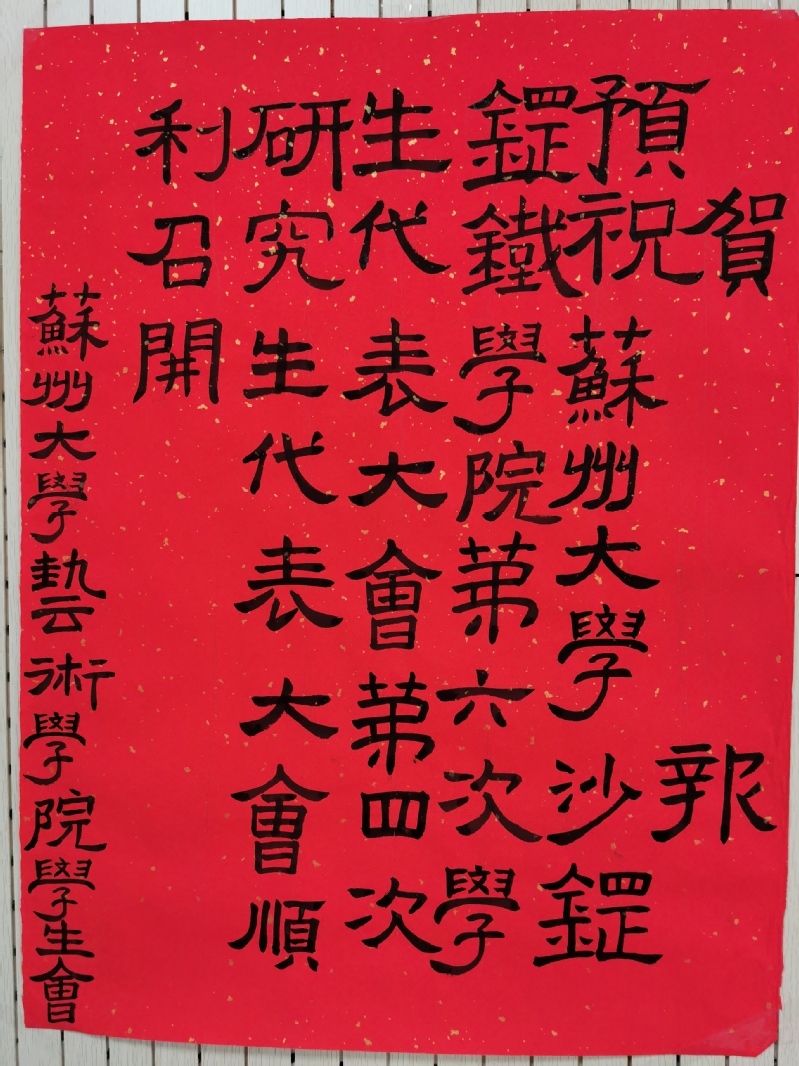 賀報
預祝蘇州大學沙鋼
鋼鐵學院第六次學
生代表大會第四次
研究生代表大會順
利召開
蘇州大學藝術學院學生會